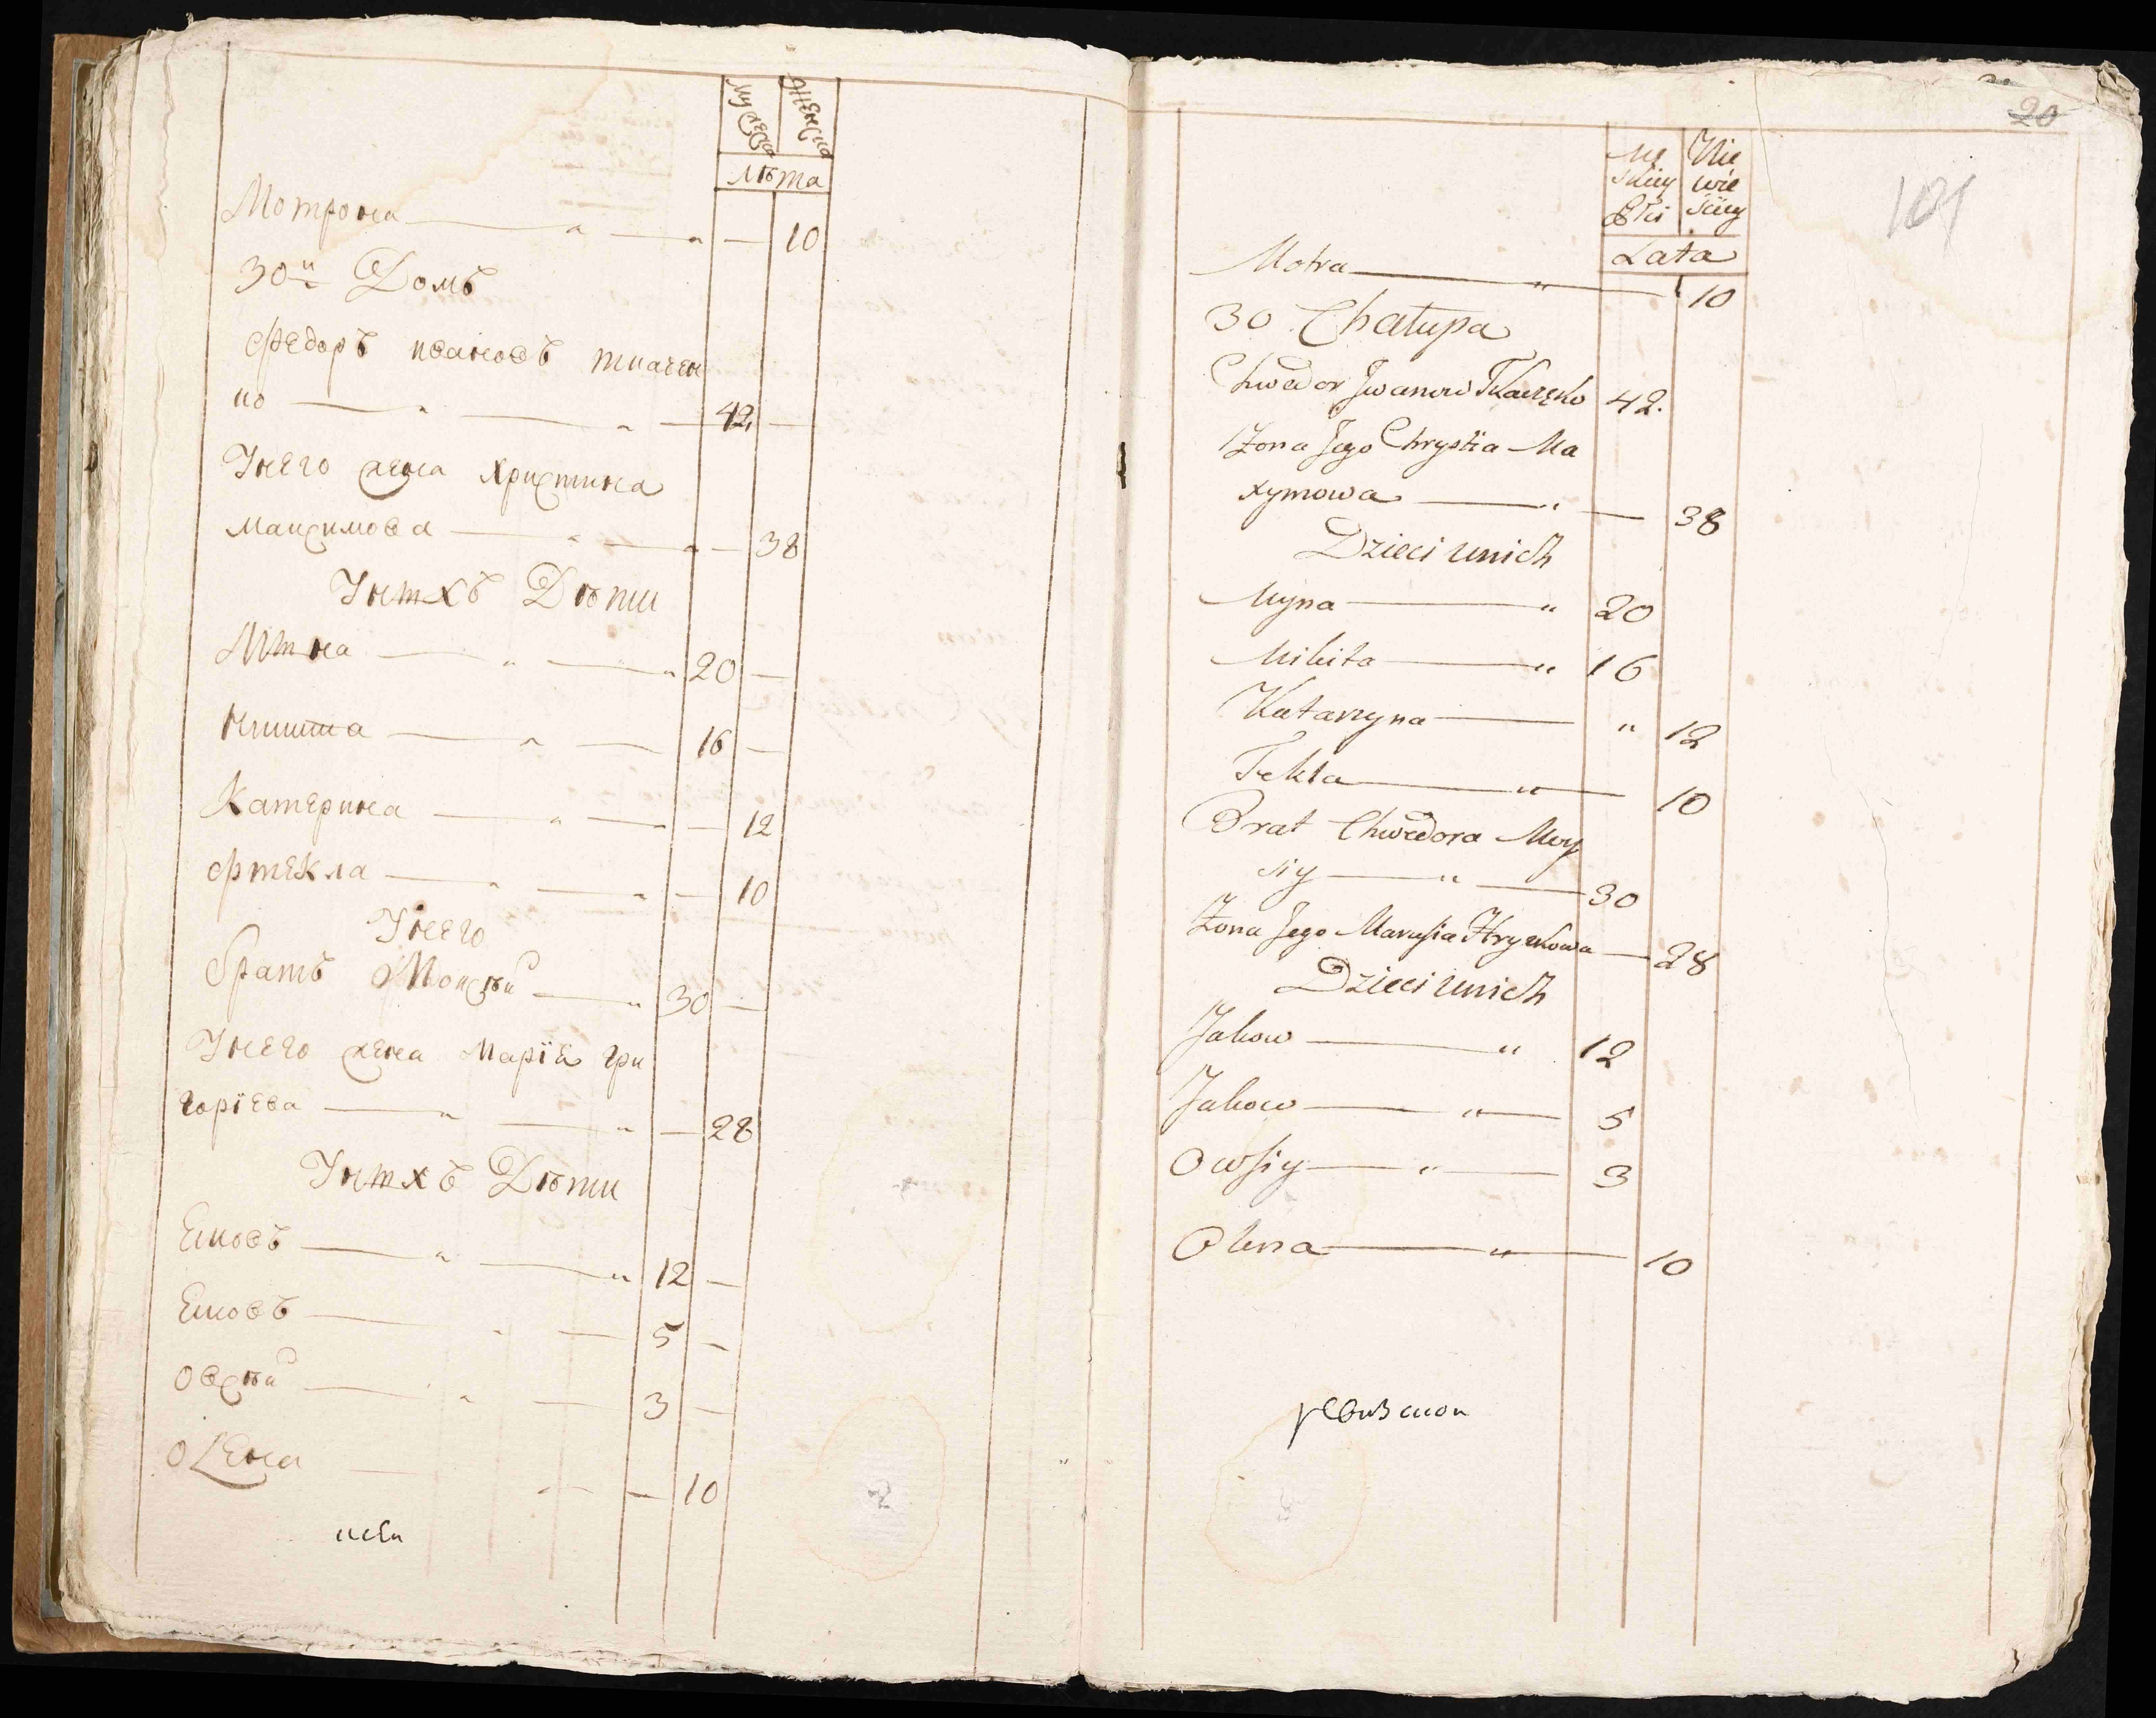 мужеска женска
лѣта
Мотрона — „ — „ — 10
30й Домъ
Федоръ ивановъ ткачен
ко — „ — „ — 42 —
Унего жена христина
максимова — „ — „ — 38
Унихъ Дѣти
Мина — „ — „ 20 —
Никита — „ — 16 —
Катерина — „ — — 12
Фтекла — „ — „ — 10
Унего
братъ Моисѣй — „ 30 —
Унего жена Марїя гри
горїева — „ — „ — 28
Унихъ Дѣти
Яковъ — „ — „ 12 —
Яковъ — „ — 5 —
Овсѣй — „ — 3 —
Олена — „ — — 10
20
101
Mę skiey Płci Nie wie sciey
Lata
Motra — „ — 10
30 Chałupa
Chwedor Jwanow Tkaczęko 42.
Żona Jego Chrystia Ma
xymowa — „ — 38
Dzieci unich
Myna — „ 20
Mikita — „ 16
Katarzyna — „ 12
Tekla — „ — 10
Brat Chwedora Moy
siy — „ — 30
Żona Jego Marusia Hryckowa — 28
Dzieci unich
Jakow — „ 12
Jakow — „ — 5
Owsiy — „ — 3
Olena — „ — 10